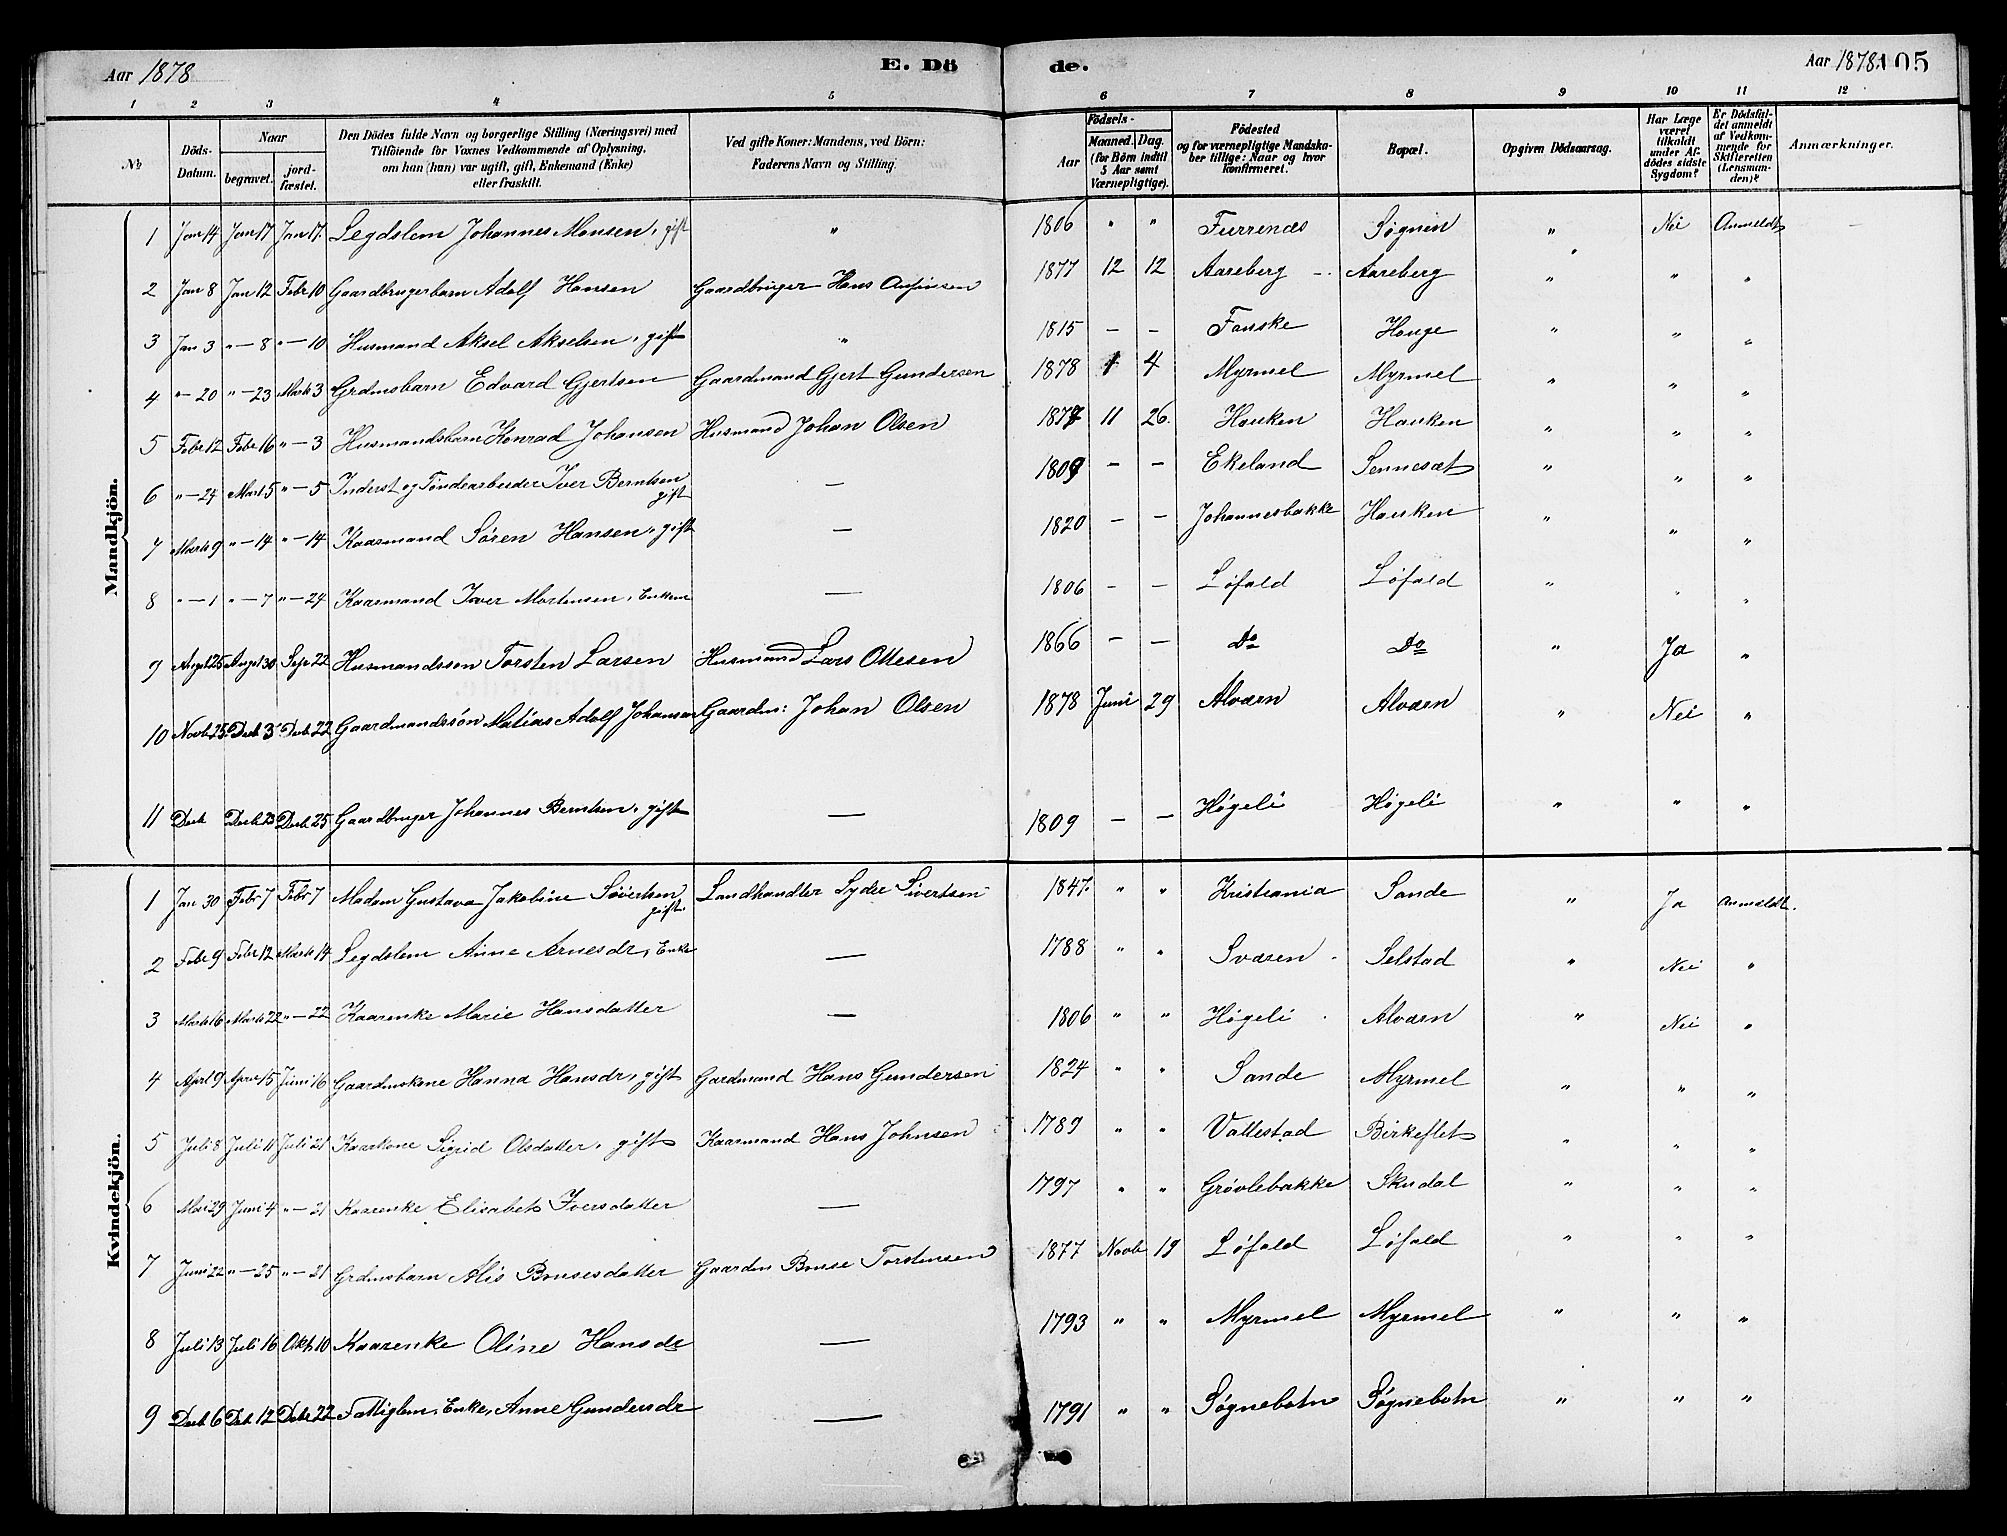 Aar 1878 E. Dö de. Aar 1878. 105
1 2 3 4 5 6 7 8 9 10 11 12
No
Döds-Datum.
Naar
begravet.
jord-fæstet.
Den Dödes fulde Navn og borgerlige Stilling (Næringsvei) med
Tilföiende for Voxnes Vedkommende af Oplysning,
om han (hun) var ugift, gift, Enkemand (Enke)
eller fraskilt.
Ved gifte Koner: Mandens, ved Börn:
Faderens Navn og Stilling.
Födsels-
Aar
Maaned. Dag.
(for Börn indtil
5 Aar samt
Værnepligtige).
Födested
og for værnepligtige Mandska-
ber tillige: Naar og hvor
konfirmeret.
Bopæl.
Opgiven Dödsaarsag.
Har Læge
været
tilkaldt
under Af-
dödes sidste
Sygdom?
Er Dödsfal-
det anmeldt
af Vedkom-
mende for
Skifteretten
(Lensman-
den)?
Anmærkninger.
Mandkjön.
1 Jan 14 Jan 17 Jan 17. Legdslem Johannes Monsen, gift " 1806 " " Furrenæs Søgnen " Nei Anmeldt
2 Jan 8 Jan 12 Febr 10 Gaardbrugerbarn Adolf Hansen Gaardbruger Hans Anfinsen 1877 12 12 Aareberg Aareberg " " "
3 Jan 3 " — 8 " — 10 Husmand Aksel Akselsen, gift " 1815 — — Fonske Houge " " "
4 " — 20 " — 23 Marts 3 Grdmsbarn Edvard Gjertsen Gaardmand Gjert Gundersen 1878 1 4 Myrmel Myrmel " " "
5 Febr 12 Febr 16 " — 3 Husmandsbarn Konrad Johansen Husmand Johan Olsen 1877 11 26. Hauken Hauken " " "
6 " — 24 Mart 5 " — 5 Inderst og Tøndearbeider Iver Berntsen gift — 1809 — — Ekeland Sennesæt " " "
7 Marts 9 " — 14 " — 14 Kaarmand Søren Hansen, gift — 1820 — — Johannesbakke Hauken " " "
8 " — 1 " — 7 " — 24 Kaarmand Iver Mortensen, Enkem — 1806 — — Løfald Løfald " " "
9 Augst 25 Augst 30 Sep 22 Husmandssøn Torsten Larsen Husmand Lars Ottesen 1866 — — Do Do " Ja "
10 Novb 25 Decb 3 Decb 22 Gaardmandssøn Matias Adolf Johansen Gaardm: Johan Olsen 1878 Juni 29 Alværn Alværn " Nei "
11 Decb Decb 23 Decb 25 Gaardbruger Johannes Berntsen, gift — 1809 — — Høgeli Høgeli " " "
Kvindekjön.
1 Jan 30 Febr 7 Febr 7 Madam Gustava Jakobine Sivertsen gift. Landhandler Syder Sivertsen 1847. " " Kristiania Sande " Ja Anmeldt.
2 Febr 9 Febr 12 Marts 14 Legdslem Anne Arnesdr, Enke — 1788 " " Sværen Selstad " Nei "
3 Marts 16 Marts 22 " — 22 Kaarenke Marie Hansdatter — 1806 " " Høgeli Alværn " Nei "
4 April 9 April 15 Juni 16 Gaardmskone Hanna Hansdr, gift Gardmand Hans Gundersen 1824 " " Sande Myrmel " " "
5 Juli 8 Juli 11 Juli 21 Kaarkone Sigrid Olsdatter, gift Kaarmand Hans Johnsen 1789 " " Vallestad Birkeflet " " "
6 Mai 29 Juni 4 " — 21 Kaarenke Elisabet Iversdatter — 1797 " " Grøvlebakke Skudal " " "
7 Juni 22 " — 25 " — 21 Grdmsbarn Alis Bonsesdatter Gaardm Bonse Torstensen 1877 Novb 19 Løfald Løfald " " "
8 Juli 13 Juli 16 Okt 10 Kaarenke Oline Hansdr — 1793 " " Myrmel Myrmel " " "
9 Decb 6 Decb 12 Debr 22 Fattiglem, Enke, Anne Gundersdr — 1791 " " Søgnebotn Søgnebotn " " "